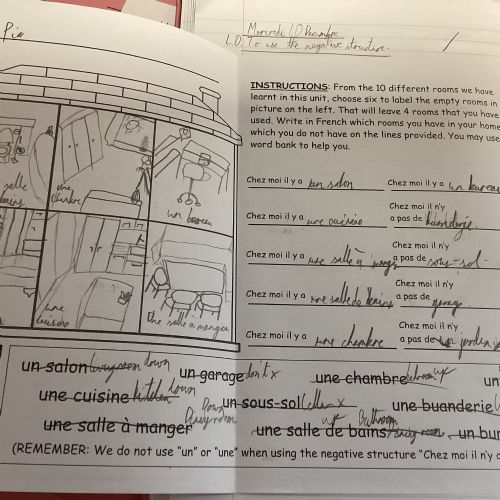 Mercredi 10 Décembre
L.O. To use the negative structure.
INSTRUCTIONS: From the 10 different rooms we have
learnt in this unit, choose six to label the empty rooms in
picture on the left. That will leave 4 rooms that you have
used. Write in French which rooms you have in your home
which you do not have on the lines provided. You may use
word bank to help you.
salle
bains
une
chambre
un bureau
une
cuisine
Une salle à manger
Chez moi il y a un salon
Chez moi il y a un bureau
Chez moi il y a une cuisine
Chez moi il n'y
a pas de buanderie.
Chez moi il y a une salle à manger
Chez moi il n'y
a pas de sous-sol.
Chez moi il y a une salle de bains
Chez moi il n'y
a pas de garage
Chez moi il y a une chambre
Chez moi il n'y
a pas de jardin
un salon livingroom down
un garage don't x
une chambre bedroom up
un
une cuisine kitchen down
un sous-sol x
une buanderie
une salle à manger Down
une salle de bains up Bathroom
un bur
(REMEMBER: We do not use "un" or "une" when using the negative structure "Chez moi il n'y a